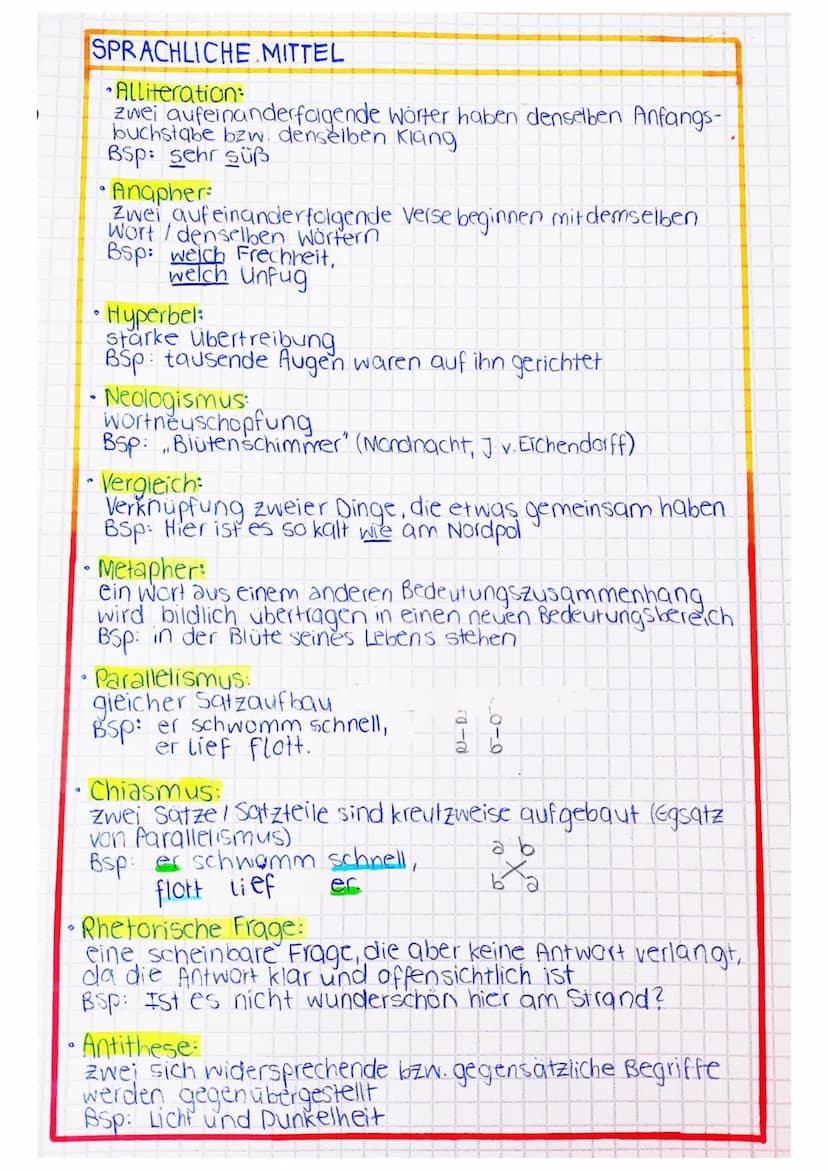 SPRACHLICHE MITTEL
• Alliteration:
zwei aufeinanderfolgende Wörter haben denselben Anfangs-
buchstabe bzw. denselben Klang
Bsp: sehr süß
• Anapher:
zwei aufeinanderfolgende Verse beginnen mit demselben
Wort / denselben Wörtern
Bsp: welch Frechheit,
welch Unfug
• Hyperbel:
starke Übertreibung
Bsp: tausende Augen waren auf ihn gerichtet
• Neologismus:
Wortneuschöpfung
Bsp: „Blütenschimmer" (Mondnacht, J v. Eichendorff)
• Vergleich:
Verknüpfung zweier Dinge, die etwas gemeinsam haben
Bsp: Hier ist es so kalt wie am Nordpol
• Metapher:
ein Wort aus einem anderen Bedeutungszusammenhang
wird bildlich übertragen in einen neuen Bedeutungsbereich
Bsp: in der Blüte seines Lebens stehen
• Parallelismus:
gleicher Satzaufbau
Bsp: er schwomm schnell, a b
er lief flott. a b
• Chiasmus:
zwei Sätze / Satzteile sind kreutzweise aufgebaut (Ggsatz
von Parallelismus)
Bsp: er schwamm schnell, a b
flott lief er. b a
• Rhetorische Frage:
eine scheinbare Frage, die aber keine Antwort verlangt,
da die Antwort klar und offensichtlich ist
Bsp: Ist es nicht wunderschön hier am Strand?
• Antithese:
zwei sich widersprechende bzw. gegensätzliche Begriffe
werden gegenübergestellt
Bsp: Licht und Dunkelheit